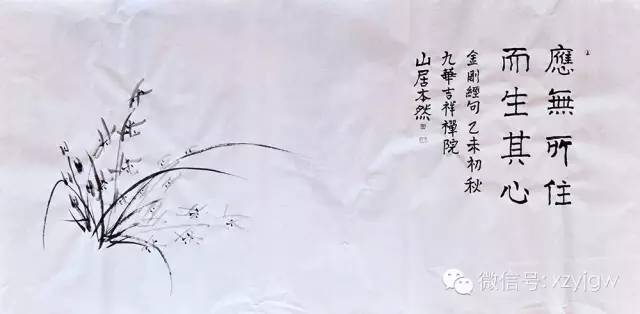 應無所住
而生其心
金剛經句 乙未初秋
九華吉祥禪院
山居本然
微信号: xzyjgw